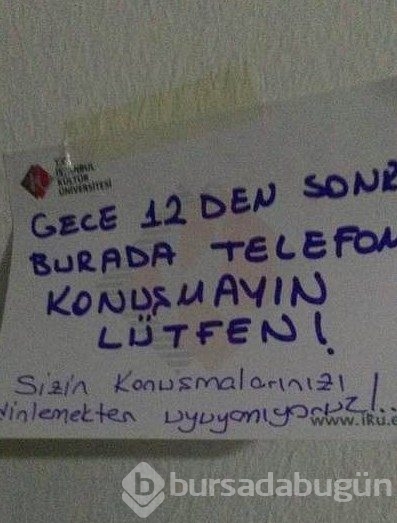 T.C.
İSTANBUL
KÜLTÜR
ÜNİVERSİTESİ
GECE 12 DEN SONR
BURADA TELEFON
KONUŞMAYIN
LÜTFEN!
Sizin Konuşmalarınızı
dinlemekten uyuyamıyoruz!..
www.iku.e
bursadabugün